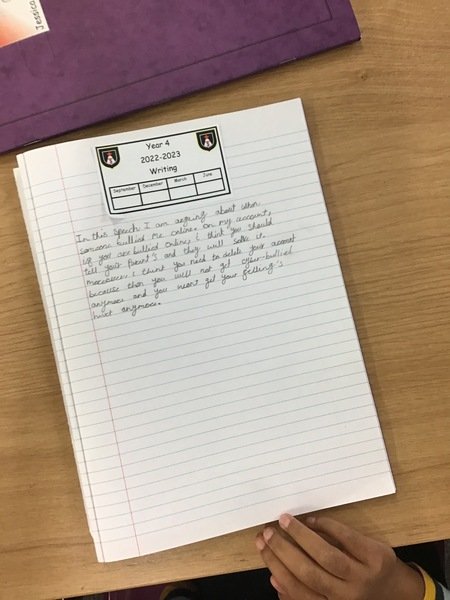 Jessica
Year 4
2022-2023
Writing
September December March June
In this speech I am argeing about when
someone bullied me online, on my account,
if you are bullied online, I think you should
tell your Parent's and they will solve it.
moreover, I think you need to delete your account
because then you will not get cyber-bullied
anymore and you won't get your feeling's
hurt anymore.